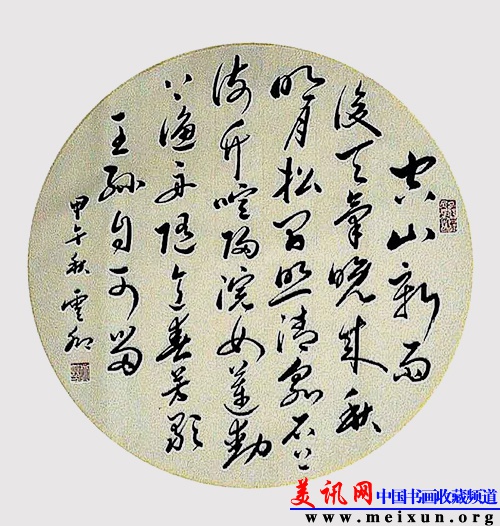 空山新雨
後天氣晚來秋
明月松間照清泉石上
流竹喧歸浣女蓮動
下漁舟隨意春芳歇
王孫自可留
甲午秋 雲卿
美讯网 中国书画收藏频道
www.meixun.org